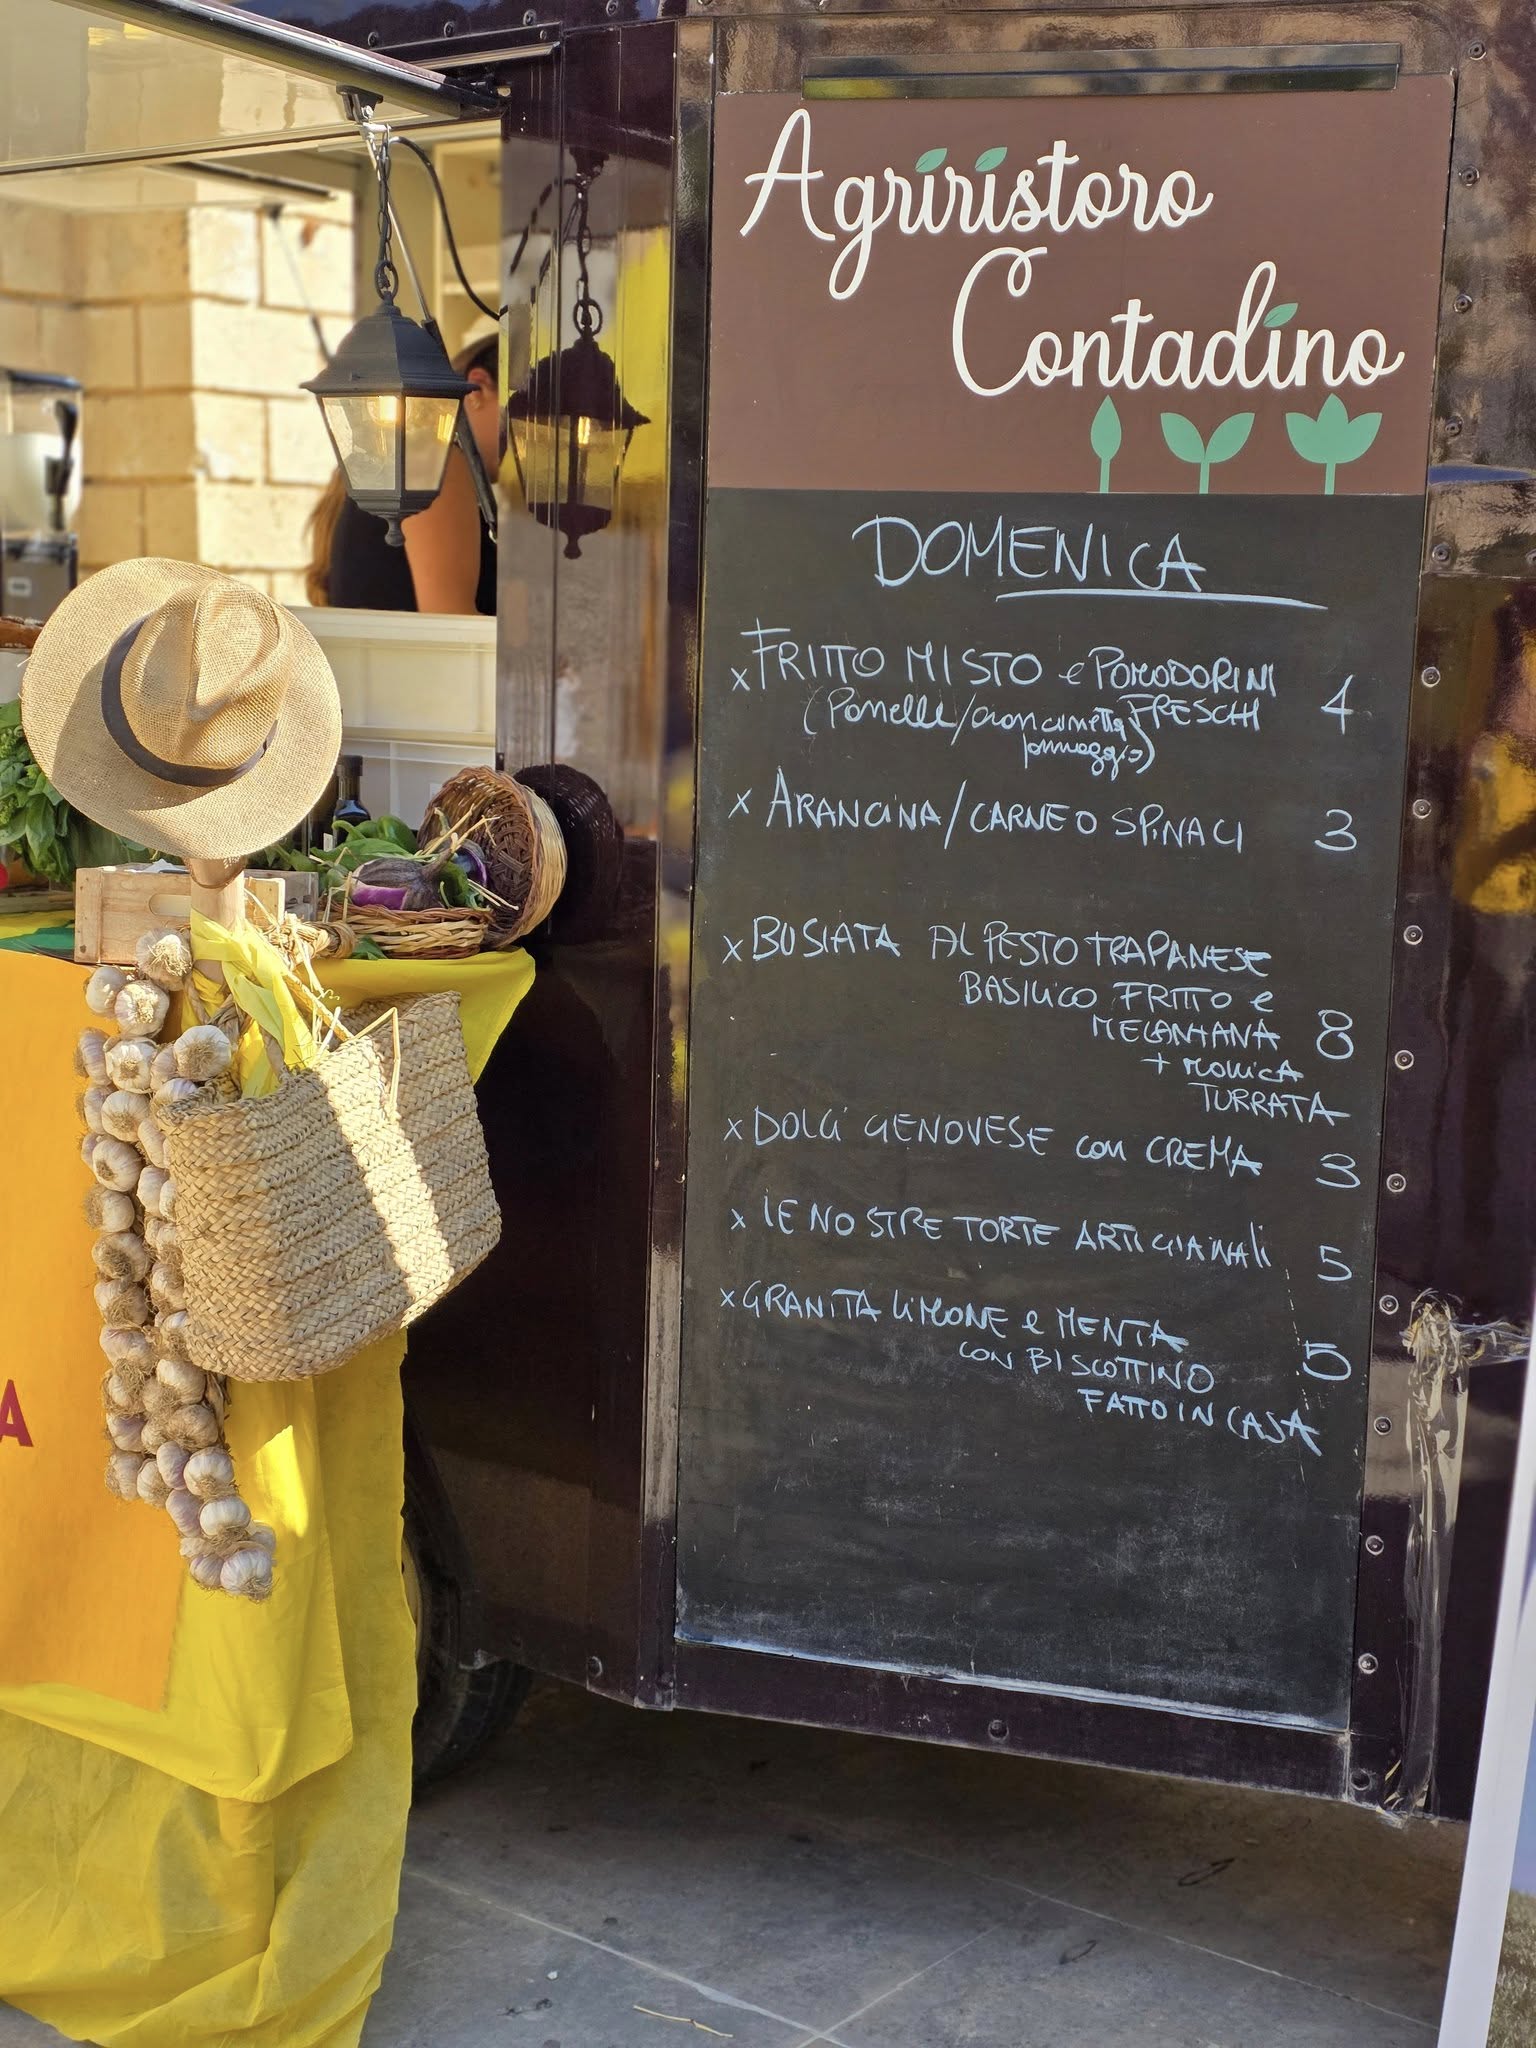 Agriristoro
Contadino
DOMENICA
x FRITTO MISTO e POMODORINI 4
(Panelle/arancinetta FRESCHI
formaggio)
x ARANCINA/CARNE O SPINACI 3
x BUSIATA AL PESTO TRAPANESE
BASILICO FRITTO e
MELANZANA 8
+ MOLLICA
TURRATA
x DOLCI GENOVESE con CREMA 3
x LE NOSTRE TORTE ARTIGIANALI 5
x GRANITA LIMONE e MENTA
CON BISCOTTINO 5
FATTO IN CASA
A